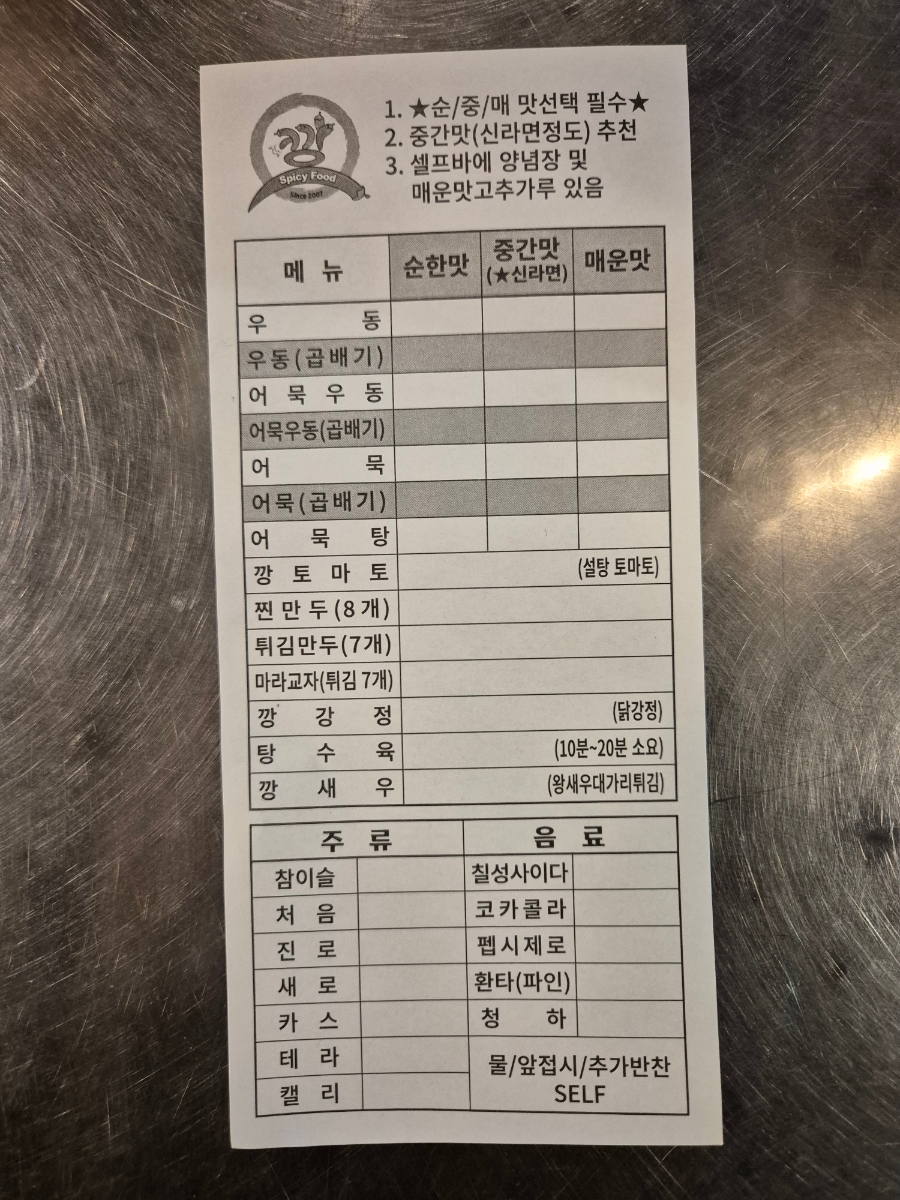 깡
Spicy Food
Since 2007
1. ★순/중/매 맛선택 필수★
2. 중간맛(신라면정도) 추천
3. 셀프바에 양념장 및
매운맛고추가루 있음
메 뉴 순한맛 중간맛 (★신라면) 매운맛
우 동
우동(곱배기)
어 묵 우 동
어묵우동(곱배기)
어 묵
어묵(곱배기)
어 묵 탕
깡 토 마 토 (설탕 토마토)
찐만두(8개)
튀김만두(7개)
마라교자(튀김 7개)
깡 강 정 (닭강정)
탕 수 육 (10분~20분 소요)
깡 새 우 (왕새우대가리튀김)
주 류 음 료
참이슬 칠성사이다
처 음 코카콜라
진 로 펩시제로
새 로 환타(파인)
카 스 청 하
테 라 물/앞접시/추가반찬
캘 리 SELF